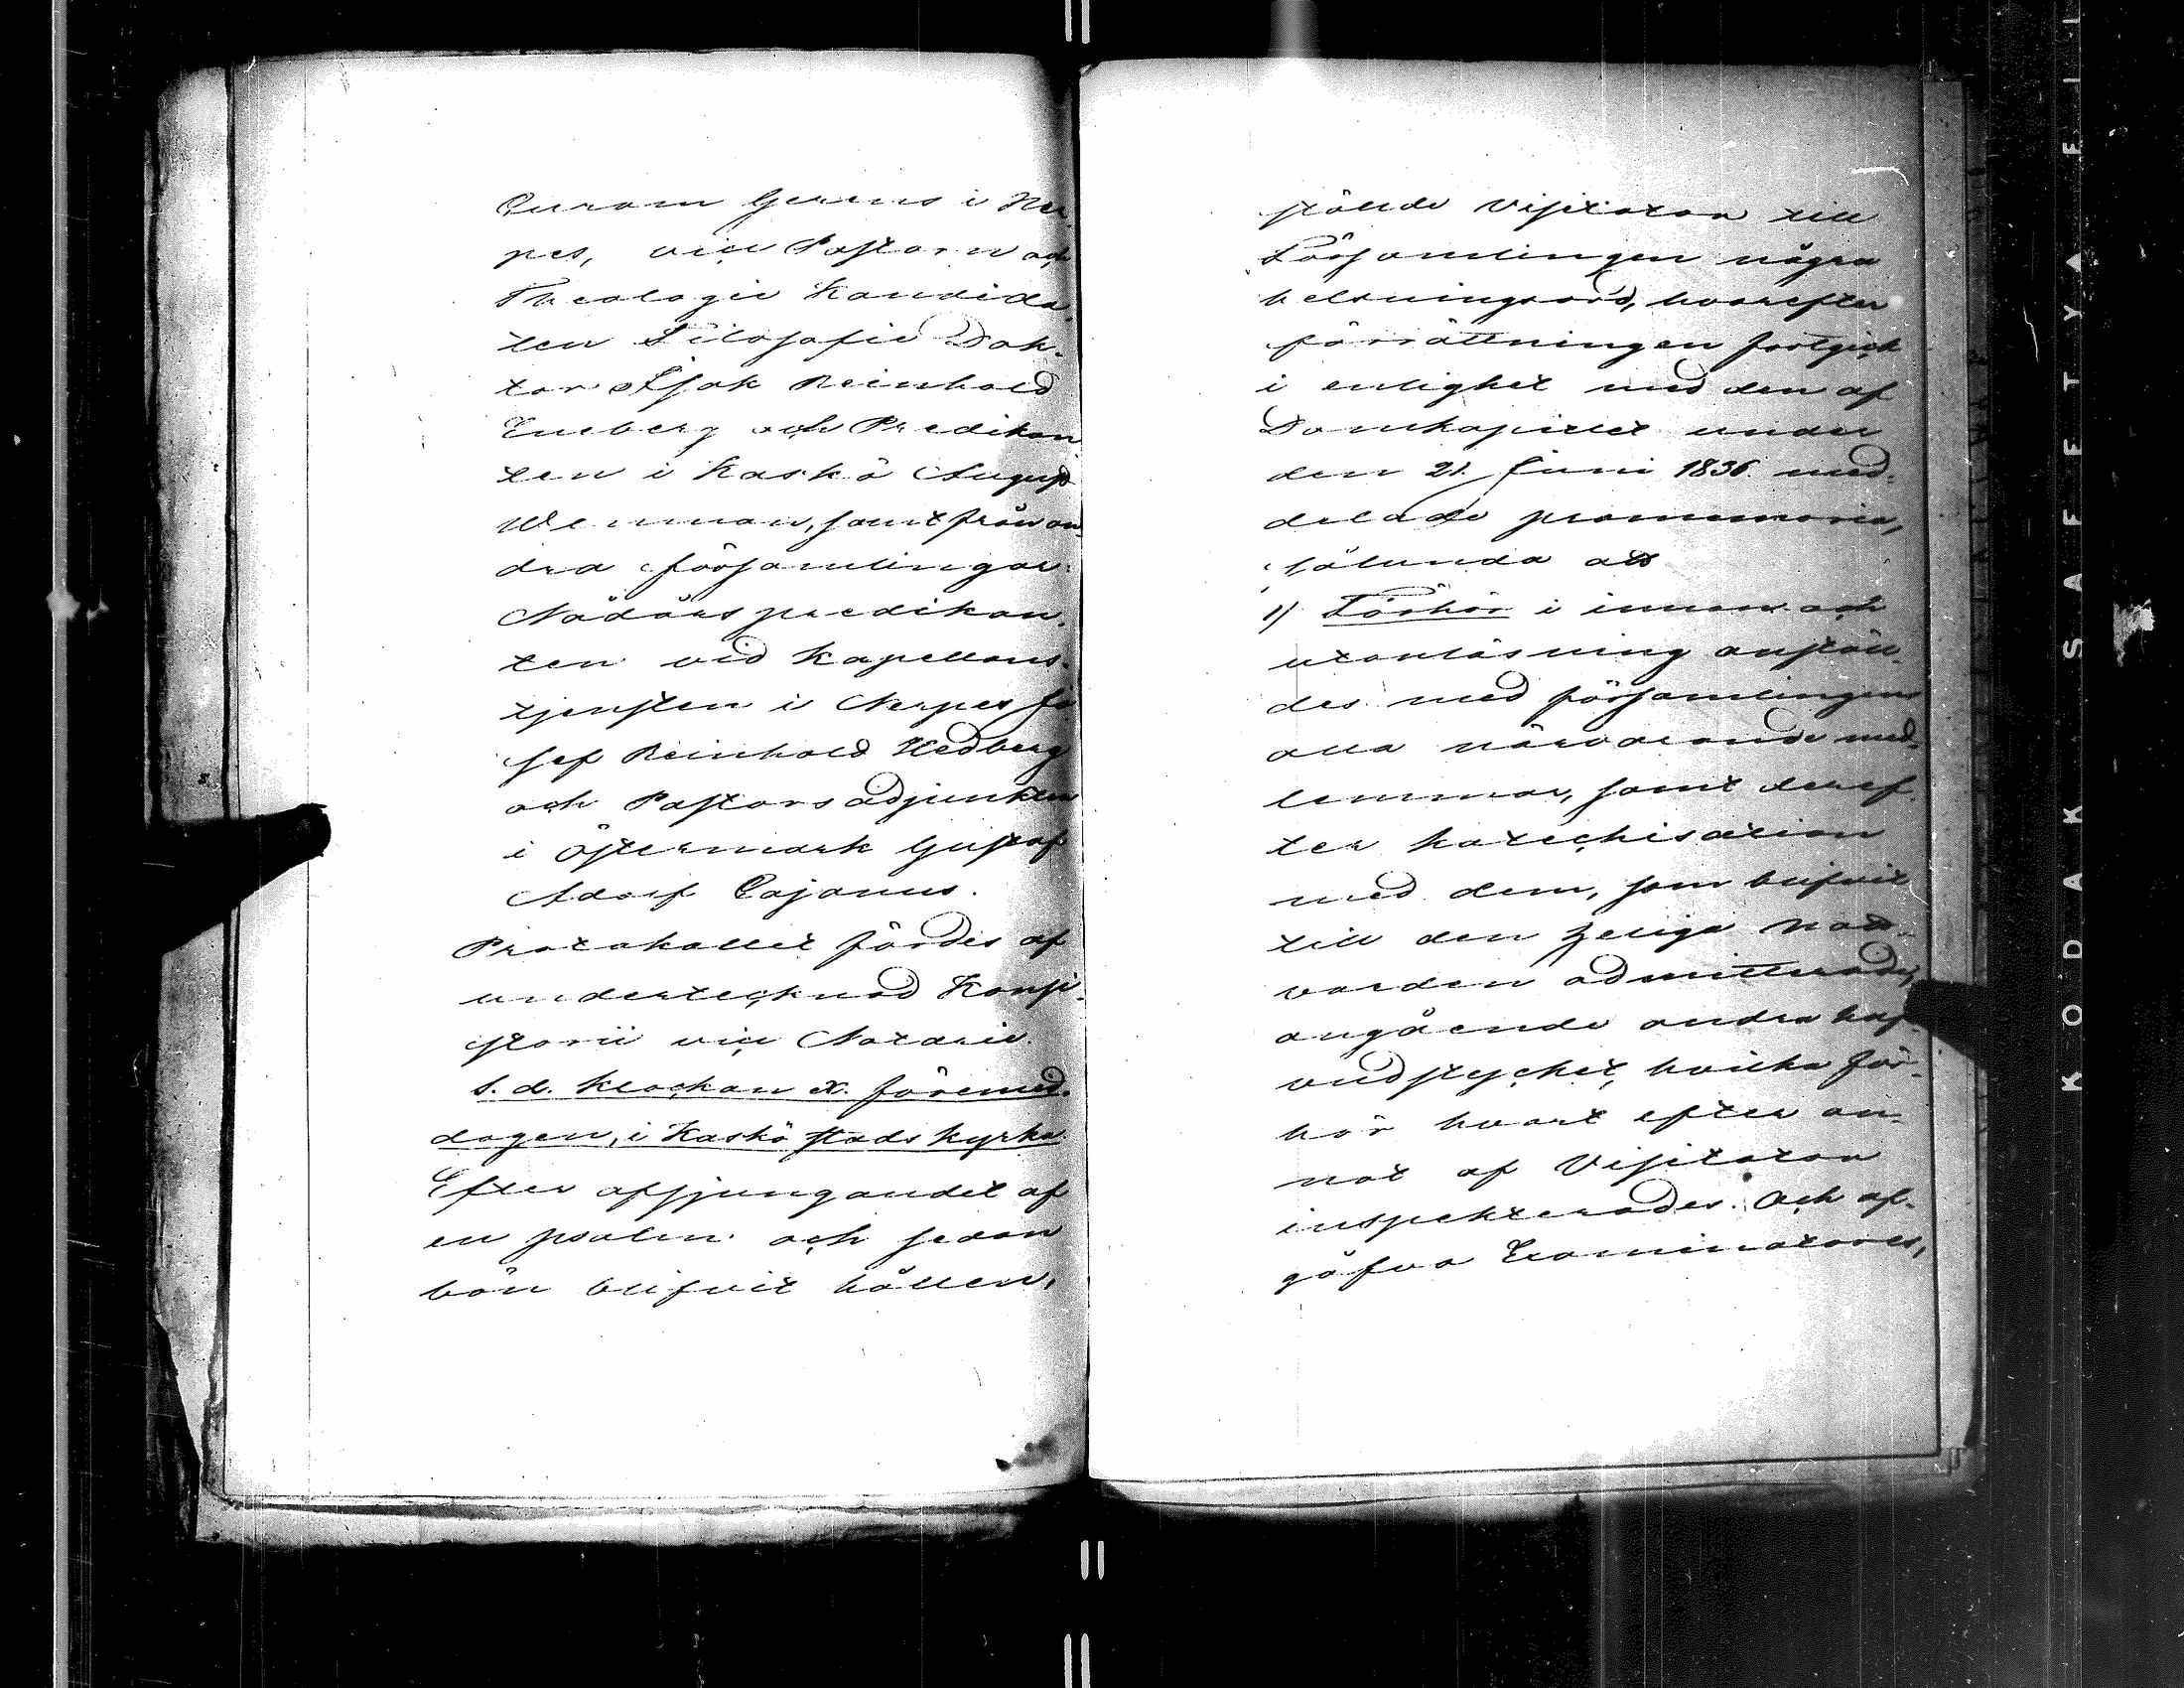 Curam Gerens i Ner-
pes, vice Pastorn och
Theologie Kandida-
ten Filosofie Dok-
tor Isak Reinhold
Eneberg och Predikan
ten i Kaskö August
Wenman, samt från an-
dra församlingar:
Nådårspredikan-
ten vid Kapellans-
tjensten i Nerpes Jo
sef Reinhold Hedberg
och Pastorsadjunkten
i Östermark Gustaf
Adolf Cajanus.
Protokollet fördes af
undertecknad Konsi-
storii vice Notarie.
S. d. Klockan X. föremid-
dagen, i Kaskö stads kyrka.
Efter afsjungandet af
en psalm och sedan
bön blifvit hållen,
stälde Visitator till
Församlingen några
helsningsord, hvarefter
förrättningen fortgick
i enlighet med den af
Domkapitlet under
den 21. Juni 1836 med-
delade promemoria,
sålunda att
1) Förhör i innan och
utanläsning anstäl-
des med församlingens
alla närvarande med-
lemmar, samt deref-
ter katechisation
med dem, som blifvit
till den heliga natt-
varden admitterade,
angående andra huf-
vudstycket, hvilka för-
hör hvart efter an-
nat af Visitator
inspekterades. Och af-
gåfvo Examinatores,
KODAK SAFETY A FIL